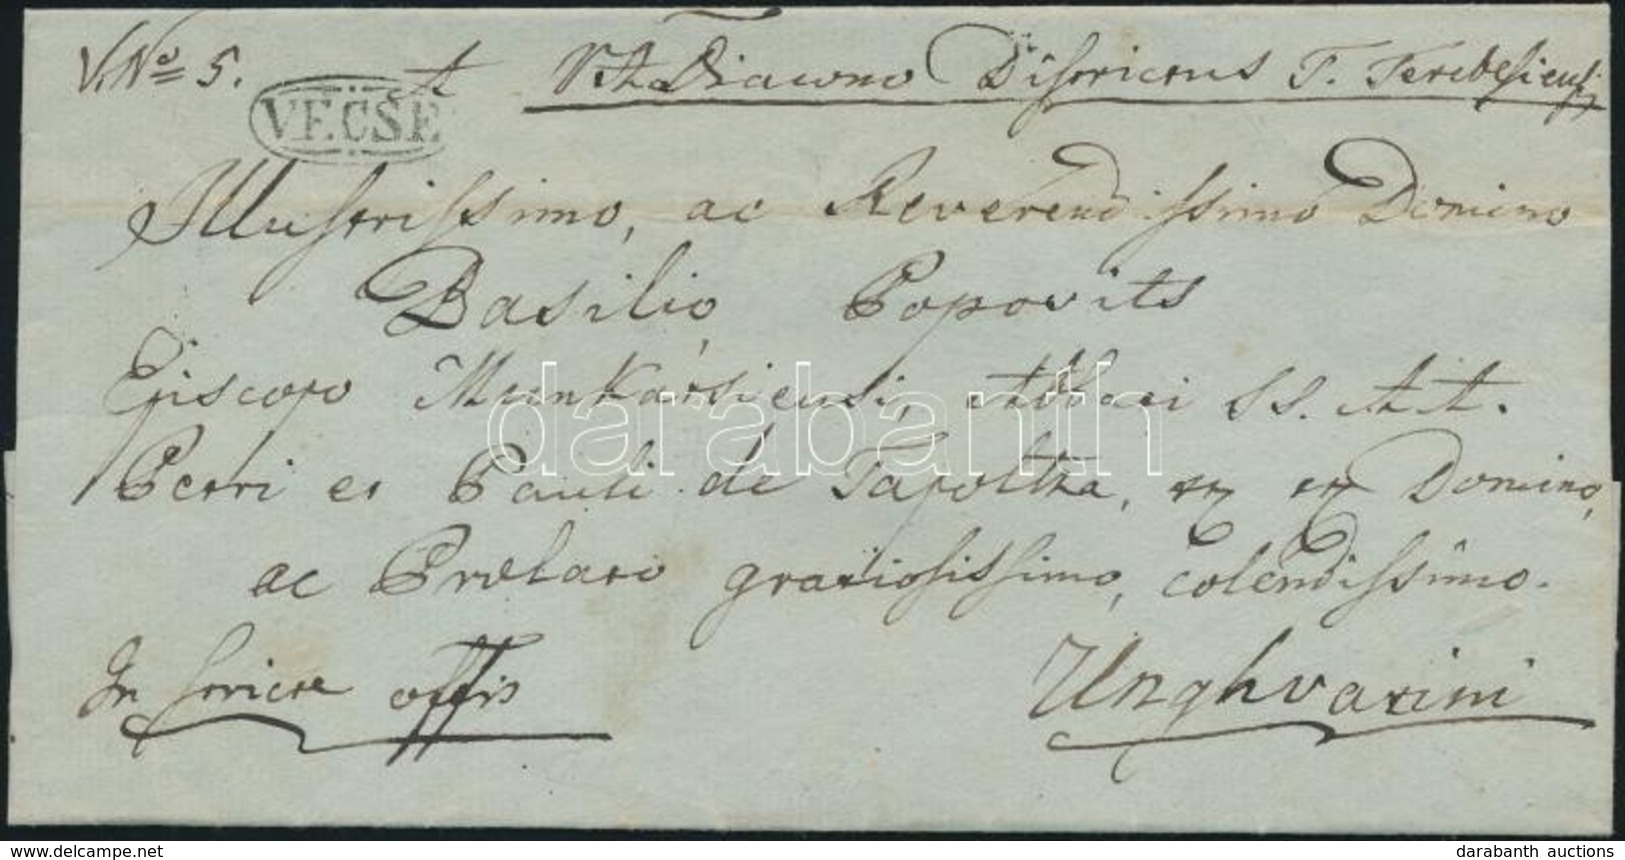 V. No 5. A V. A. Diacono Districtus T. Terebesiensis
VECSE
Illustrissimo, ac Reverendissimo Domino
Basilio Popovits
Episcopo Munkacsiensi, Abbati SS. AA.
Petri et Pauli de Tapoltza, Domino,
ac Prælato gratiosissimo, colendissimo.
In servitio offis
Unghvarini
darabanth
delcampe.net
darabanth auctions